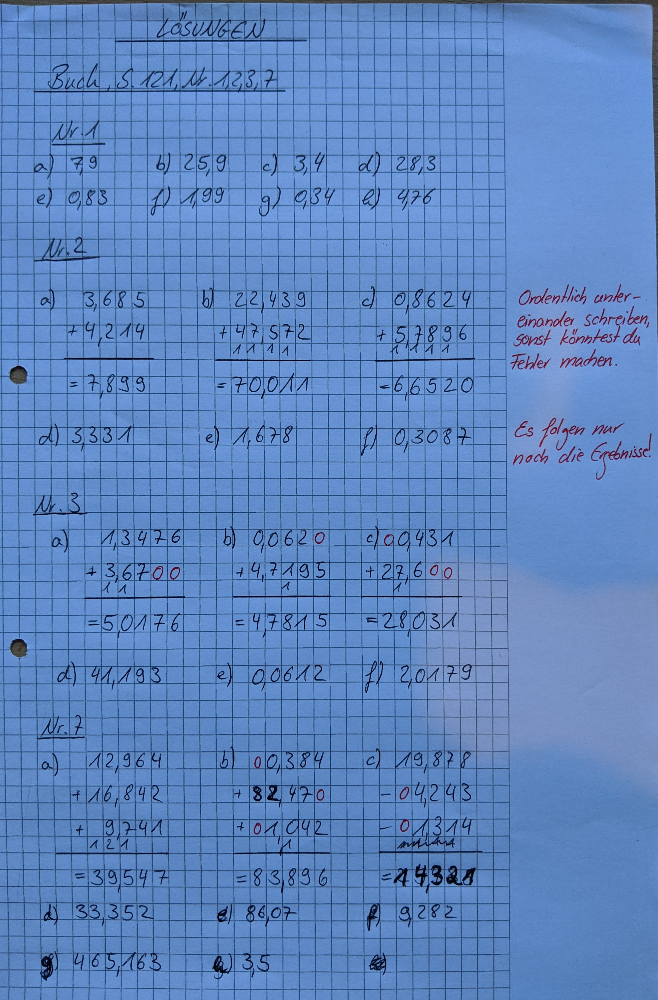 LÖSUNGEN
Buch, S. 121, Nr. 1,2,3,7
Nr. 1
a) 7,9 b) 25,9 c) 3,4 d) 28,3
e) 0,83 f) 1,99 g) 0,34 h) 4,76
Nr. 2
a) 3,685 b) 22,439 c) 0,8624
+ 4,214 + 47,572 + 5,7896
1 1 1 1 1 1 1 1
= 7,899 = 70,011 = 6,6520
Ordentlich unter-
einander schreiben,
sonst könntest du
Fehler machen.
d) 3,331 e) 1,678 f) 0,3087
Es folgen nur
noch die Ergebnisse!
Nr. 3
a) 1,3476 b) 0,0620 c) 00,431
+ 3,6700 + 4,7195 + 27,600
1 1 1 1
= 5,0176 = 4,7815 = 28,031
d) 41,193 e) 0,0612 f) 2,0179
Nr. 7
a) 12,964 b) 00,384 c) 19,878
+ 16,842 + 82,470 - 04,243
+ 9,741 + 01,042 - 01,314
1 2 1 1
= 39,547 = 83,896 = 14,321
d) 33,352 e) 86,07 f) 9,282
g) 465,163 h) 3,5